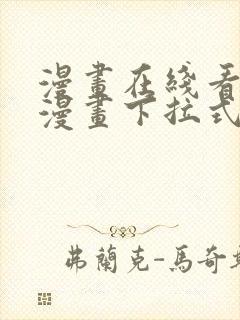 漫畫在綫看
漫畫下拉式
弗蘭克-馬奇